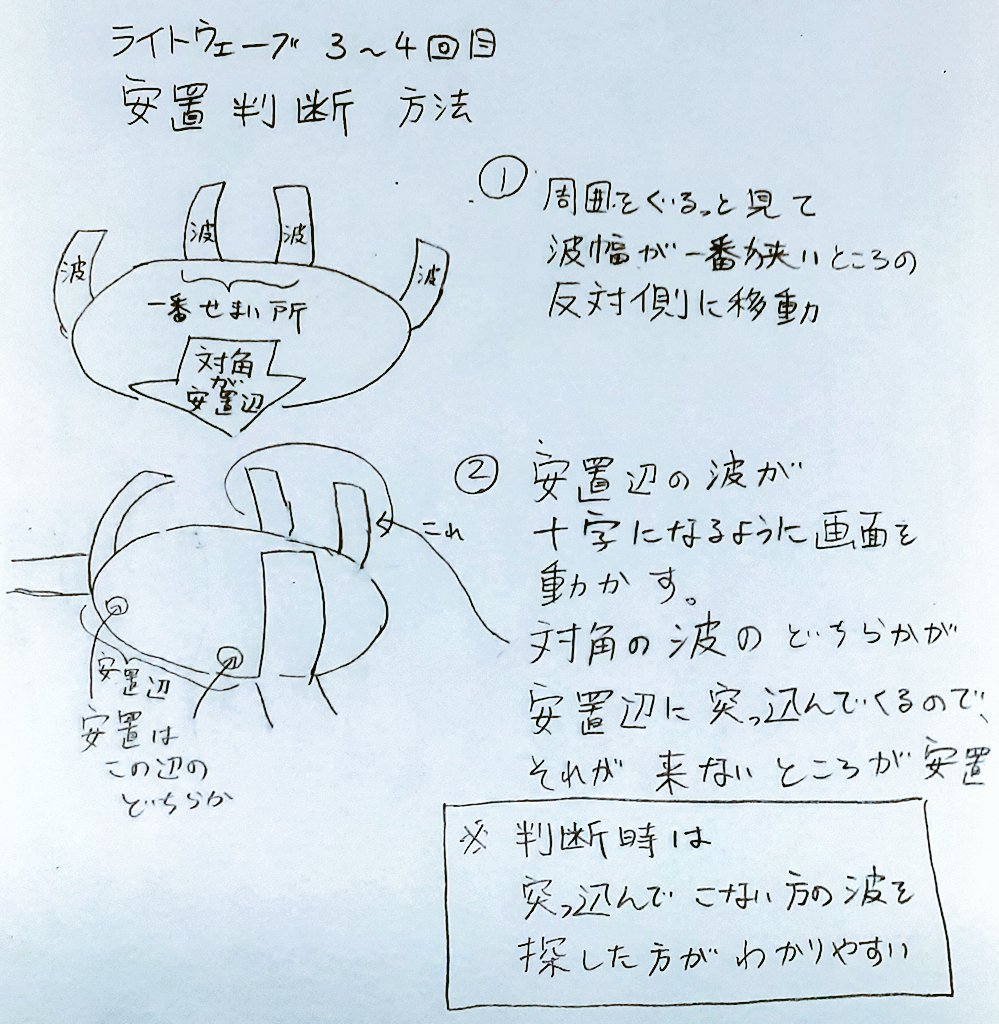 ライトウェーブ 3～4回目
安置判断 方法
① 周囲をぐるっと見て
波幅が一番狭いところの
反対側に移動
波
波
波
波
一番せまい所
対角
が
安置辺
② 安置辺の波が
十字になるように画面を
動かす。
対角の波のどちらかが
安置辺に突っ込んでくるので、
それが来ないところが安置
これ
安置辺
安置は
この辺の
どちらか
※ 判断時は
突っ込んでこない方の波を
探した方がわかりやすい